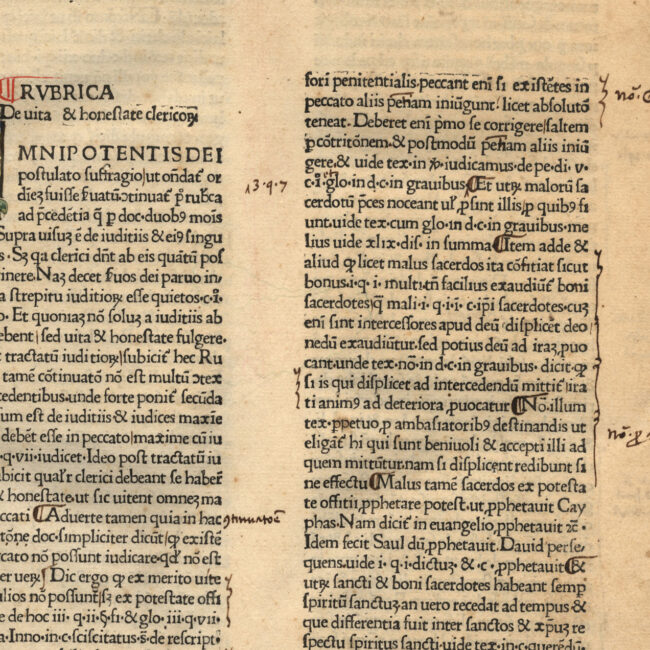 RVBRICA
De uita & honestate clericoꝝ
MNIPOTENTIS DEI
postulato suffragio/ut ondat̄ or
ad p̄cedētia
Supra uisuꝫ ē de iuditiis & eiꝰ singu
Sꝫ qa clerici dn̄t ab eis quātū pos
inere. Naꝫ decet ẜuos dei paruo in
a strepitu iuditioꝝ esse quietos
o. Et quoniaꝫ nō soluꝫ a iuditiis ab
ebent/sed uita & honestate fulgere.
tractatū iuditioꝝ/subicit̄ hec Ru
tamē cōtinuatō nō est multū ↄtex
cedentibus.unde forte ponit̄ secūda
um est de iuditiis & iudices maxīe
debēt esse in peccato/maxime cū iu
q.vii.iudicet. Ideo post tractatū iu
bicit qualr̄ clerici debeant se haber̄
& honestate.ut sic uitent omneꝫ ma
ccati Aduerte tamen quia in hac
doc.simpliciter dicūt/ꝙ existē
cato nō possunt iudicare.qd̓ nō est
er ueꝝ/ Dic ergo ꝙ ex merito uite
alios nō possunt/sꝫ ex potestate offi
e de hoc iii.q.ii.§.fi & glo.iii.q.vii.
a.Inno.in.c.sciscitatus.de rescript.
13.9.7
ꝯtinuatōē
fori penitentialis.peccant eni si existētes in
peccato aliis pe̅nam iniūgunt.licet absolutō
teneat. Deberet eni p̄mo se corrigere/saltem
p cōtritōnem.& postmodū pe̅nam aliis iniū
gere.& uide tex.in iudicamus.de pe.di.v.
c.i.glo in.d.c.in grauibus Et utꝝ maloꝝ sa
cerdotū pces noceant ul̓.psint illis/p quibꝰ fi
unt.uide tex.cum glo.in.d.c.in grauibus.me
lius uide xlix.dis.in summa Item adde &
aliud ꝙ licet malus sacerdos ita cōfitiat sicut
bonus.i.q.i.multi.tn̄ facilius exaudiūt̄ boni
sacerdotes/qꝫ mali.i.q.i.c.ip̄i sacerdotes.cuꝫ
eni sint intercessores apud deū/displicēt deo
nedū exaudiūtur.sed potius deū ad iraꝫ.puo
cant.unde tex.nō.in.d.c.in grauibus.dicit.ꝙ
si is qui displicet ad intercedendū mittit̄/ira
ti animꝰ ad deteriora.puocatur No.illum
tex.ppetuo.p ambasiatoribꝰ destinandis ut
eligāt̄ hi qui sunt beniuoli & accepti illi ad
quem mittūtur.nam si displicent redibunt si
ne effectu Malus tamē sacerdos ex potesta
te offitii.pphetare potest.ut.pphetauit Cay
phas. Nam dicit̄ in euangelio.pphetauit ⁊c̄.
Idem fecit Saul dū.pphetauit. Dauid perse
quens.uide i.q.i.dictuꝫ.&.c.pphetauit &
utꝝ sancti & boni sacerdotes habeant semp
spiritū sanctuꝫ.an uero recedat ad tempus &
que differentia fuit inter sanctos & xp̄uꝫ re
spectu spiritus sancti.uide tex.in.c.queredū.